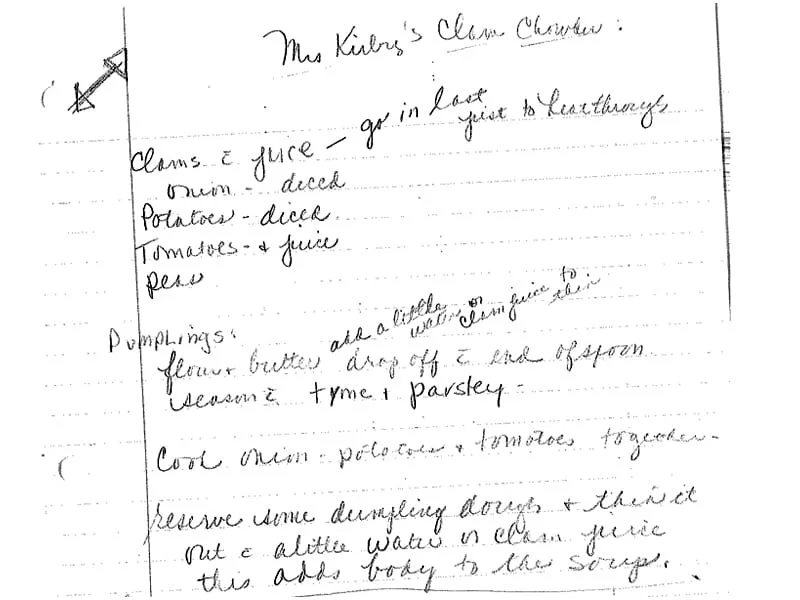 Mrs Kirby's Clam Chowder:
Clams c̄ juice - go in last
just to heat through
onion - diced
Potatoes - diced
Tomatoes - & juice
peas
Dumplings:
add a little
water or
clam juice to
thin
flour & butter drop off c̄ end of spoon
season c̄ tyme & parsley -
Cook onion - potatoes & tomatoes together -
reserve some dumpling dough & thin it
out c̄ a little water or clam juice
this adds body to the soup.